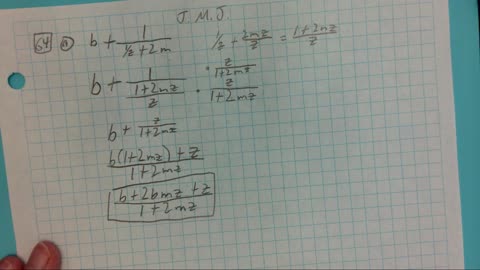 J. M. J.
64 a b + 1/(1/z + 2m) 1/z + 2mz/z = (1+2mz)/z
b + 1/((1+2mz)/z) · (z/(1+2mz))/(z/(1+2mz))
b + z/(1+2mz)
(b(1+2mz) + z)/(1+2mz)
(b + 2bmz + z)/(1+2mz)